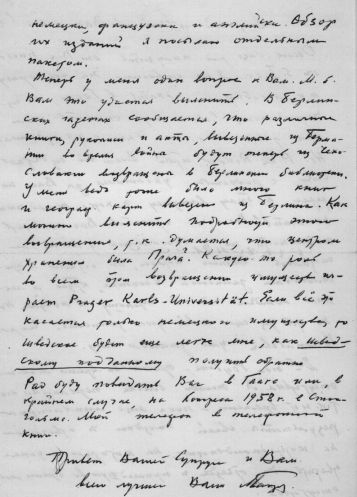 немецки, французски и английски. Обзор
их изданий я посылаю отдельным
пакетом.
Теперь у меня один вопрос к Вам. М. б.
Вам это удастся выяснить. В берлин-
ских газетах сообщается, что различные
книги, рукописи и акты, вывезенные из Герма-
нии во время войны будут теперь из Чехо-
словакии возвращены в берлинские библиотеки.
У меня ведь тоже было много книг
и географ. карт вывезено из Берлина. Как
можно выяснить подробности этого
возвращения, т.к. думается, что центром
хранения была Прага. Какую-то роль
во всем этом возвращении имущества иг-
рает Prager Karls-Universität. Если всё это
касается только немецкого имущества, то
шведское будет еще легче мне, как швед-
скому подданному получить обратно
Рад буду повидать Вас в Гааге или, в
крайнем случае, на конгрессе 1958 г. в Сток-
гольме. Мой телефон в телефонной
книге.
Привет Вашей супруге и Вам.
всего лучшего Ваш